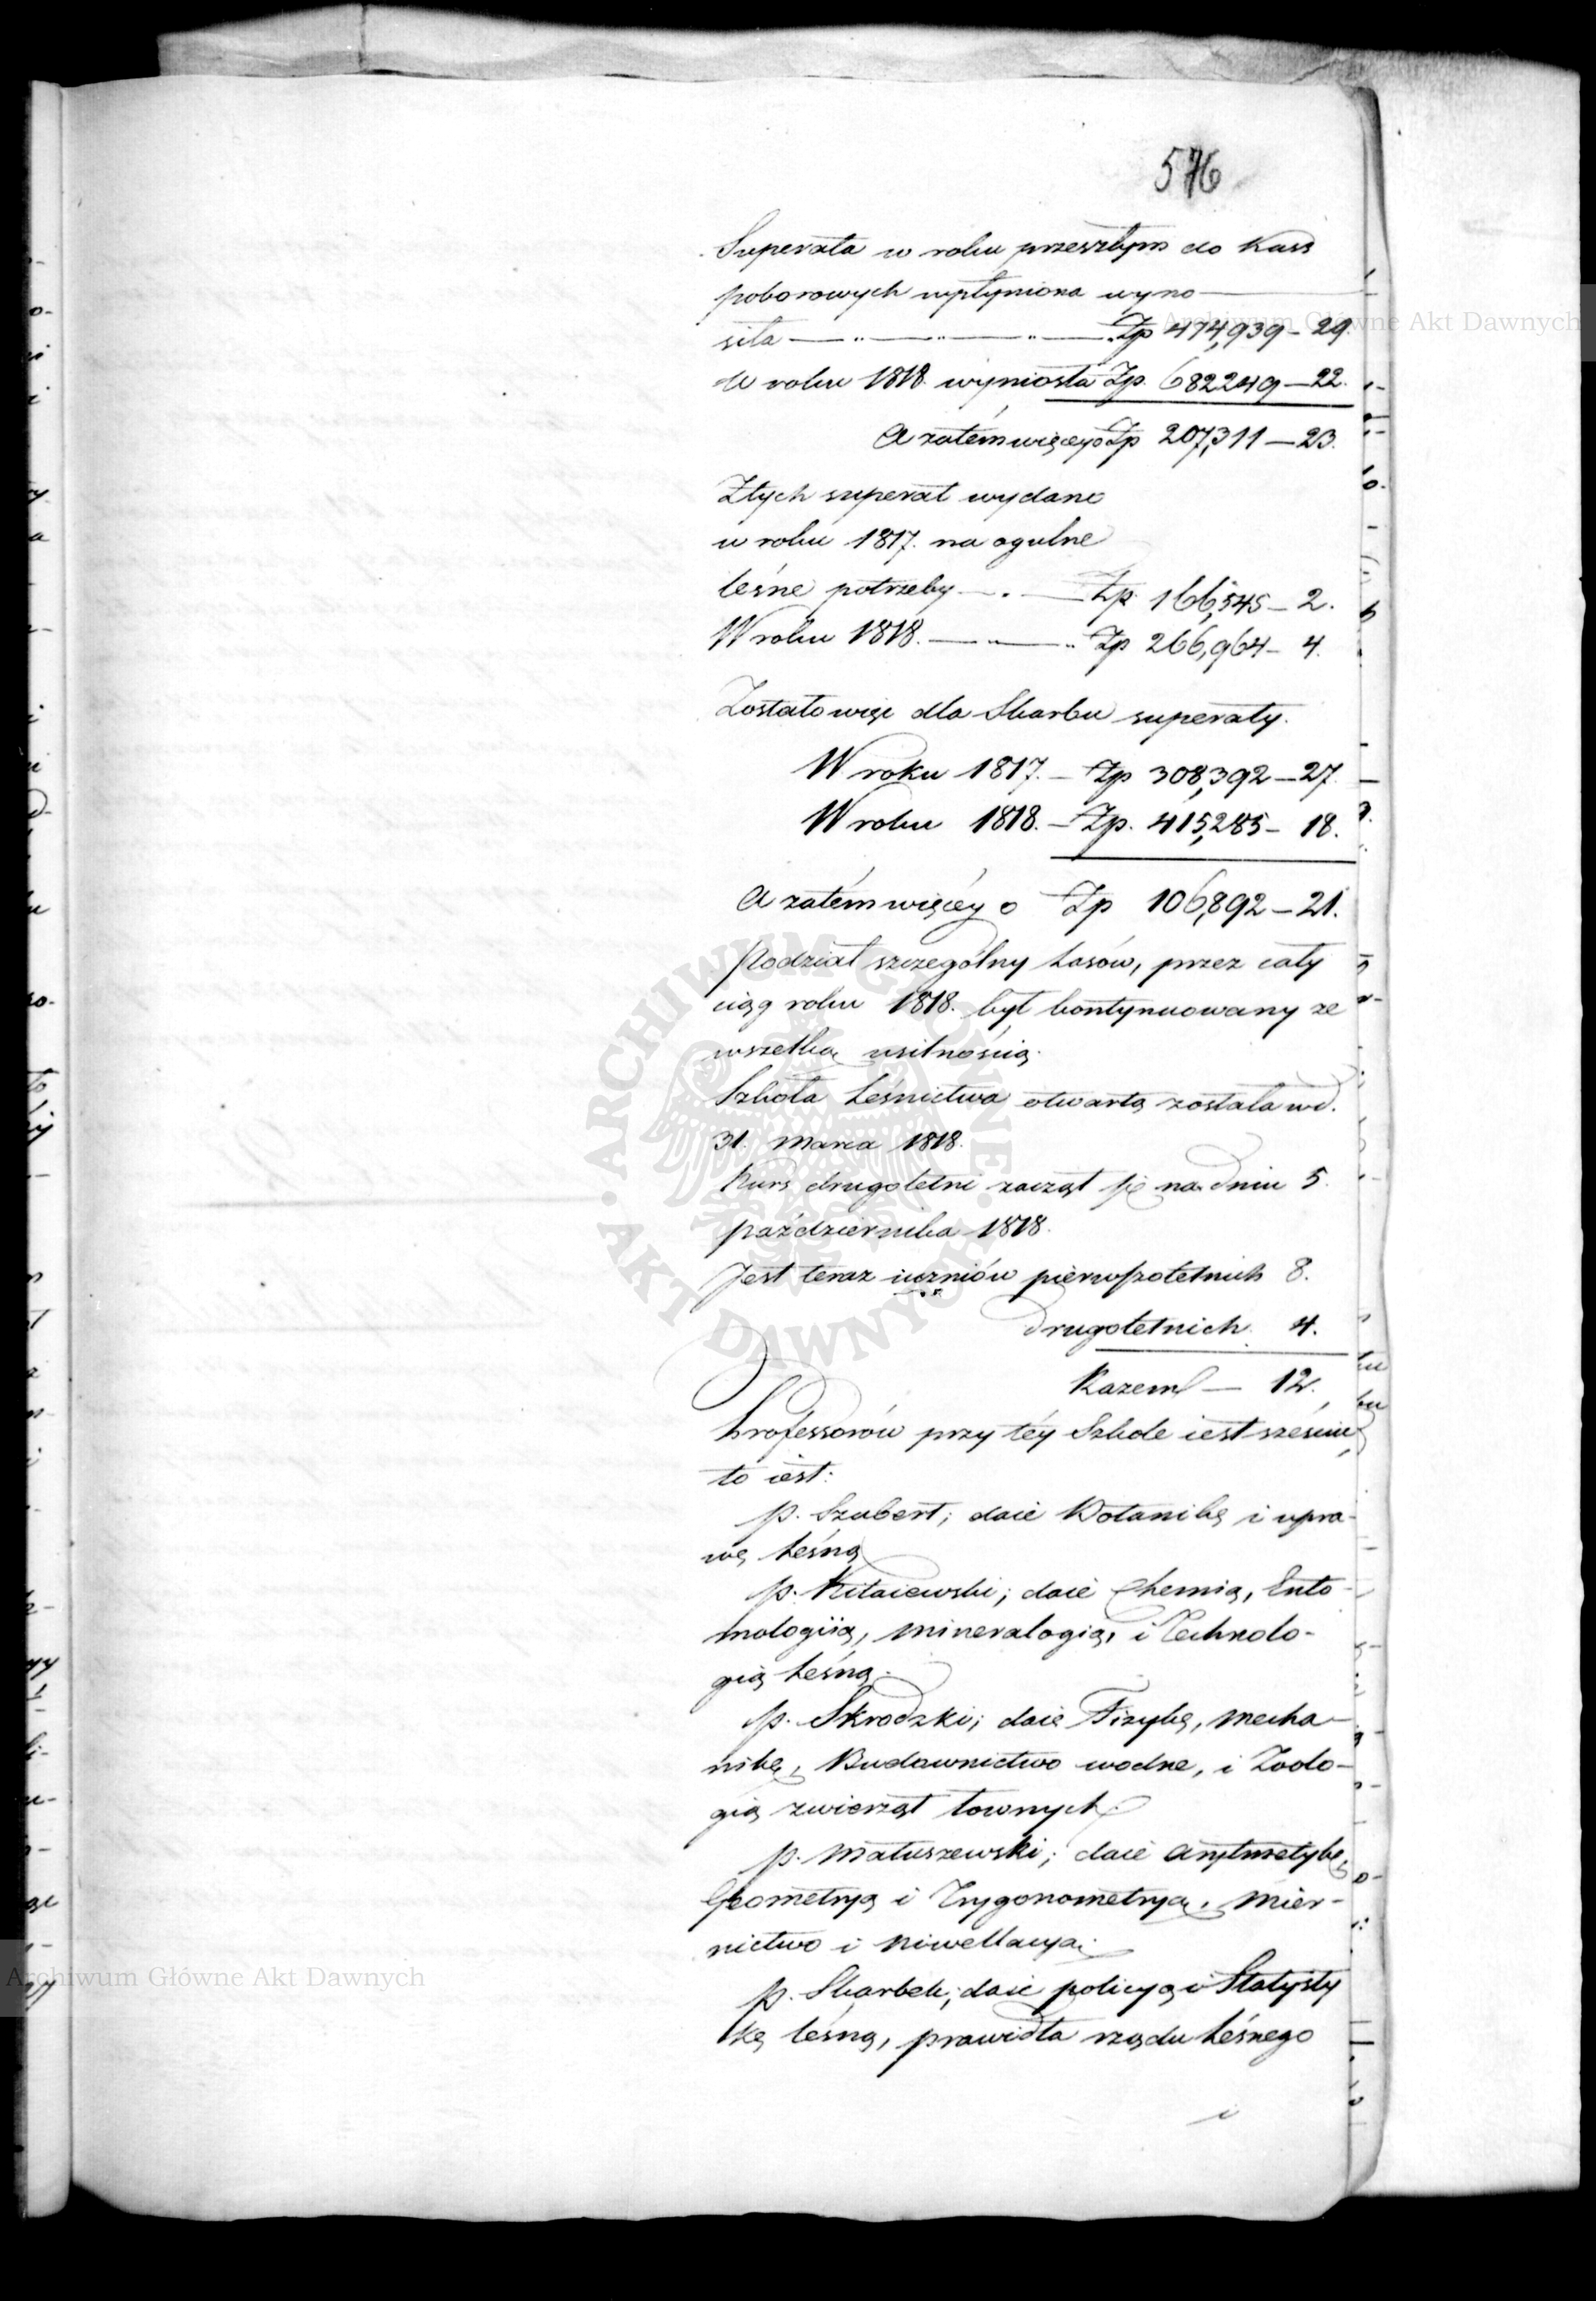 576
Superata w roku przeszłym do Kass
poborowych wpłyniona wyno-
siła — Zp 474,939 - 29.
W roku 1818. wyniosła Zp. 682249 — 22.
A zatém więcey o Zp 207,311 — 23.
Z tych superat wydano
w roku 1817. na ogulne
leśne potrzeby — Zp. 166,545 - 2.
W roku 1818. — Zp 266,964 - 4.
Zostało więc dla Skarbu superaty.
W roku 1817. — Zp 308,392 — 27.
W roku 1818. — Zp. 415,285 - 18.
A zatém więcéy o Zp 106,892 — 21.
Podział szczególny Lasów, przez cały
ciąg roku 1818. był kontynuowany ze
wszelką usilnością.
Szkoła Leśnictwa otwartą została w d.
31. Marca 1818.
Kurs drugoletni zaczął się na dniu 5.
października 1818.
Jest teraz uczniów pierwszoletnich 8.
drugoletnich. 4.
Razem — 12.
Professorów przy téy Szkole iest sześciu,
to iest:
P. Szubert; daie Botanikę i upra-
wę Leśną
P. Kitaiewski; daie Chemią, Ento-
mologiią, Mineralogią, i Technolo-
gią Leśną.
P. Skrodzki; daie Fizykę, Mecha-
nikę, Budownictwo wodne, i Zoolo-
gią zwierząt łownych.
P. Matuszewski; daie Arytmetykę,
Geometryą i Trygonometryą, Mier-
nictwo i Niwellacyą.
P. Skarbek; daie policyą i Statysty
kę leśną, prawidła rządu Leśnego
i
Archiwum Główne Akt Dawnych
Archiwum Główne Akt Dawnych
ARCHIWUM GŁÓWNE · AKT DAWNYCH ·